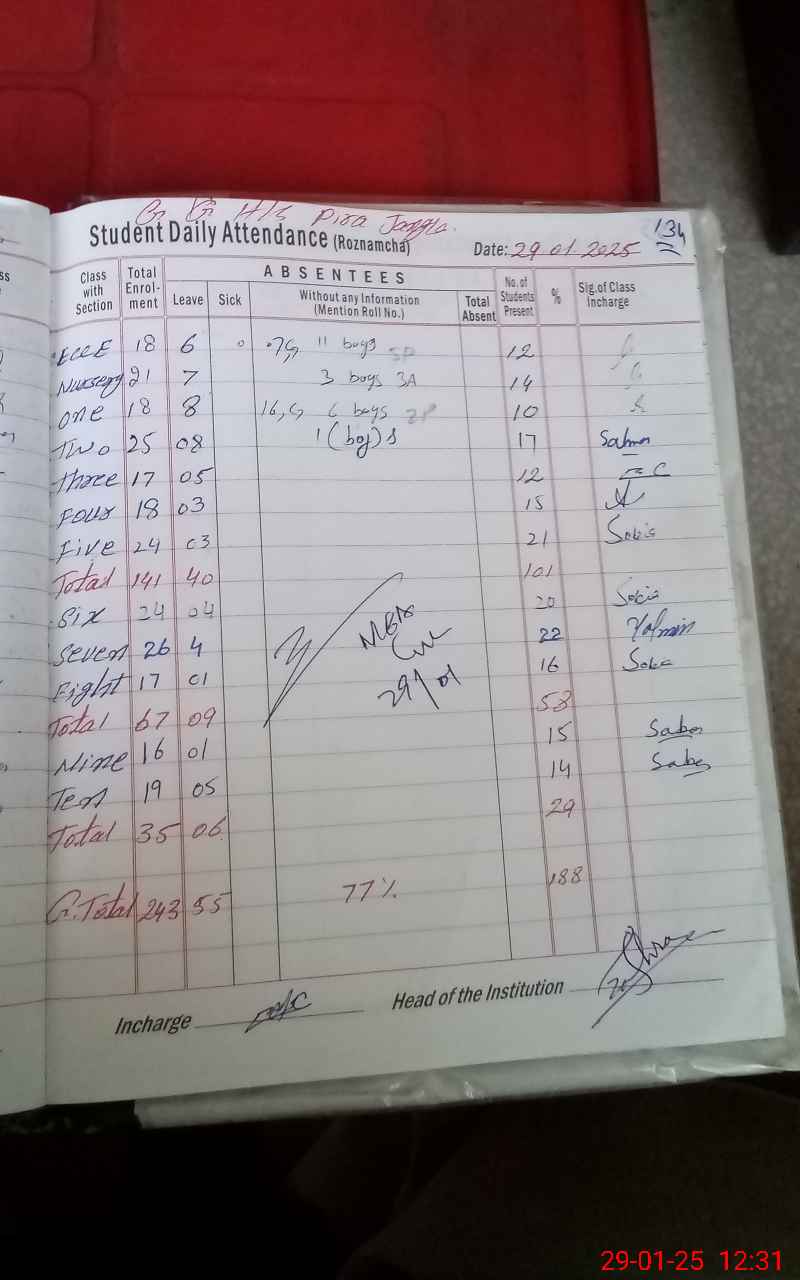 G. G H/S Pira
Student Daily Attendance (Roznamcha)
134
Date: 29 01 2025
Class with Section
Total Enrol-ment
ABSENTEES
Leave
Sick
Without any Information (Mention Roll No.)
Total Absent
No. of Students Present
%
Sig. of Class Incharge
ECCE 18 6 0 7G, 11 boys 12
Nursery 21 7 3 boys 3A 14
One 18 8 16, G 6 boys 2P 10
Two 25 08 1 (boy) 17
Three 17 05 12
Four 18 03 15
Five 24 03 21
Total 141 40 101
Six 24 04 20
Seven 26 4 22
Eight 17 01 16
Total 67 09 58
29/01
Nine 16 01 15
Ten 19 05 14
Total 35 06 29
G.Total 243 55 77% 188
Incharge
Head of the Institution
29-01-25 12:31